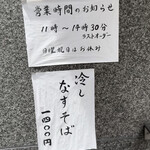 営業時間のお知らせ
11時～14時30分
ラストオーダー
日曜祝日はお休み
冷し
なすそば
一四〇〇円